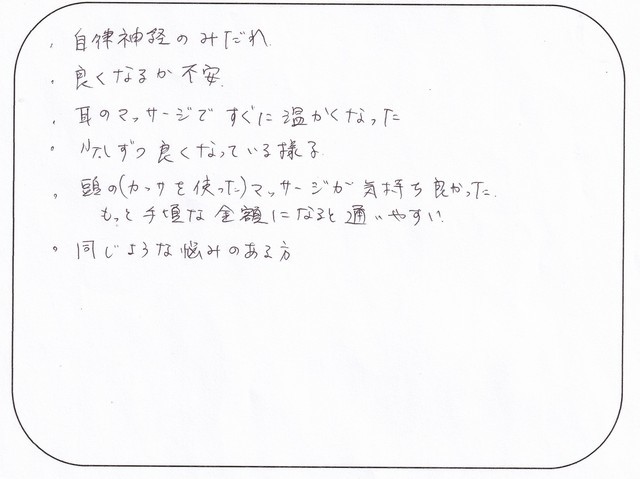 ・自律神経のみだれ
・良くなるか不安
・耳のマッサージですぐに温かくなった
・少しずつ良くなっている様子
・頭の(カッサを使った)マッサージが気持ち良かった
もっと手頃な金額になると通いやすい
・同じような悩みのある方